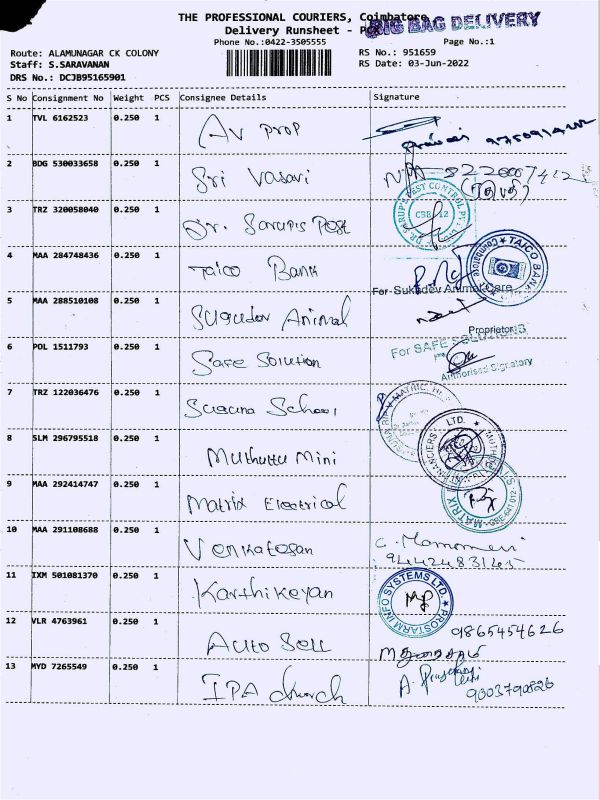 THE PROFESSIONAL COURIERS, Coimbatore
BIG BAG DELIVERY
Delivery Runsheet -
Phone No.:0422-3505555
Page No.:1
Route: ALAMUNAGAR CK COLONY
RS No.: 951659
Staff: S.SARAVANAN
RS Date: 03-Jun-2022
DRS No.: DCJB95165901
S No Consignment No Weight PCS Consignee Details Signature
1 TVL 6162523 0.250 1 AV Prop
2 BDG 530033658 0.250 1 Sri Vasavi
8220007412
3 TRZ 320058040 0.250 1 Dr. Sarups Pest
DR. SARUP'S PEST CONTROL
CBE 12
4 MAA 284748436 0.250 1 Taico Bank
TAICO BANK
Coimbatore
For Sukadev Animal Care
5 MAA 288510108 0.250 1 Animal
Proprietor
6 POL 1511793 0.250 1 Safe Solution
For SAFE SOLUTIONS
Authorised Signatory
7 TRZ 122036476 0.250 1 School
MATRIC.
8 SLM 296795518 0.250 1 Muthuttu Mini
FINANCIERS LTD.
9 MAA 292414747 0.250 1 Matrix Electrical
MATRIX
10 MAA 291108688 0.250 1 Venkatesan
9442483145
11 IXM 501081370 0.250 1 Karthikeyan
PROSTARM INFO SYSTEMS LTD.
12 VLR 4763961 0.250 1 Auto Sell
9865454626
13 MYD 7265549 0.250 1 IPA church
9003790826